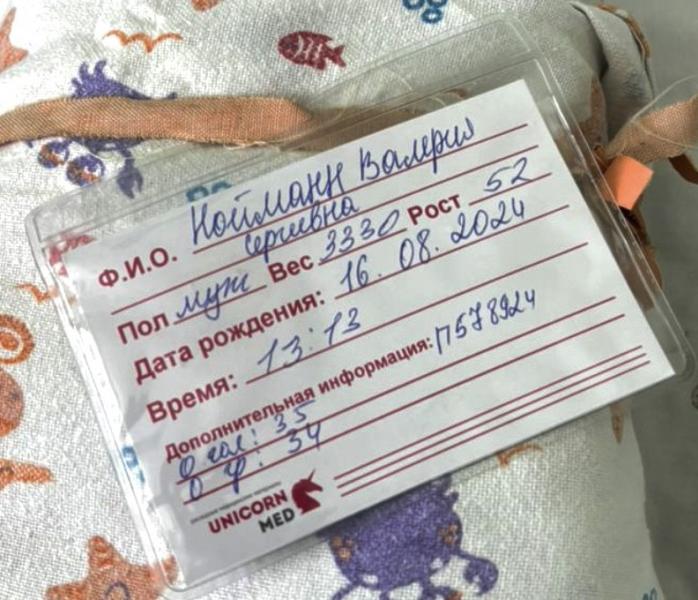 Ф.И.О. Нойманн Валерия
Сергеевна
Пол муж Вес 3330 Рост 52
Дата рождения: 16. 08. 2024
Время: 13:13
Дополнительная информация: П578924
О гол: 35
О гр: 34
UNICORN
MED